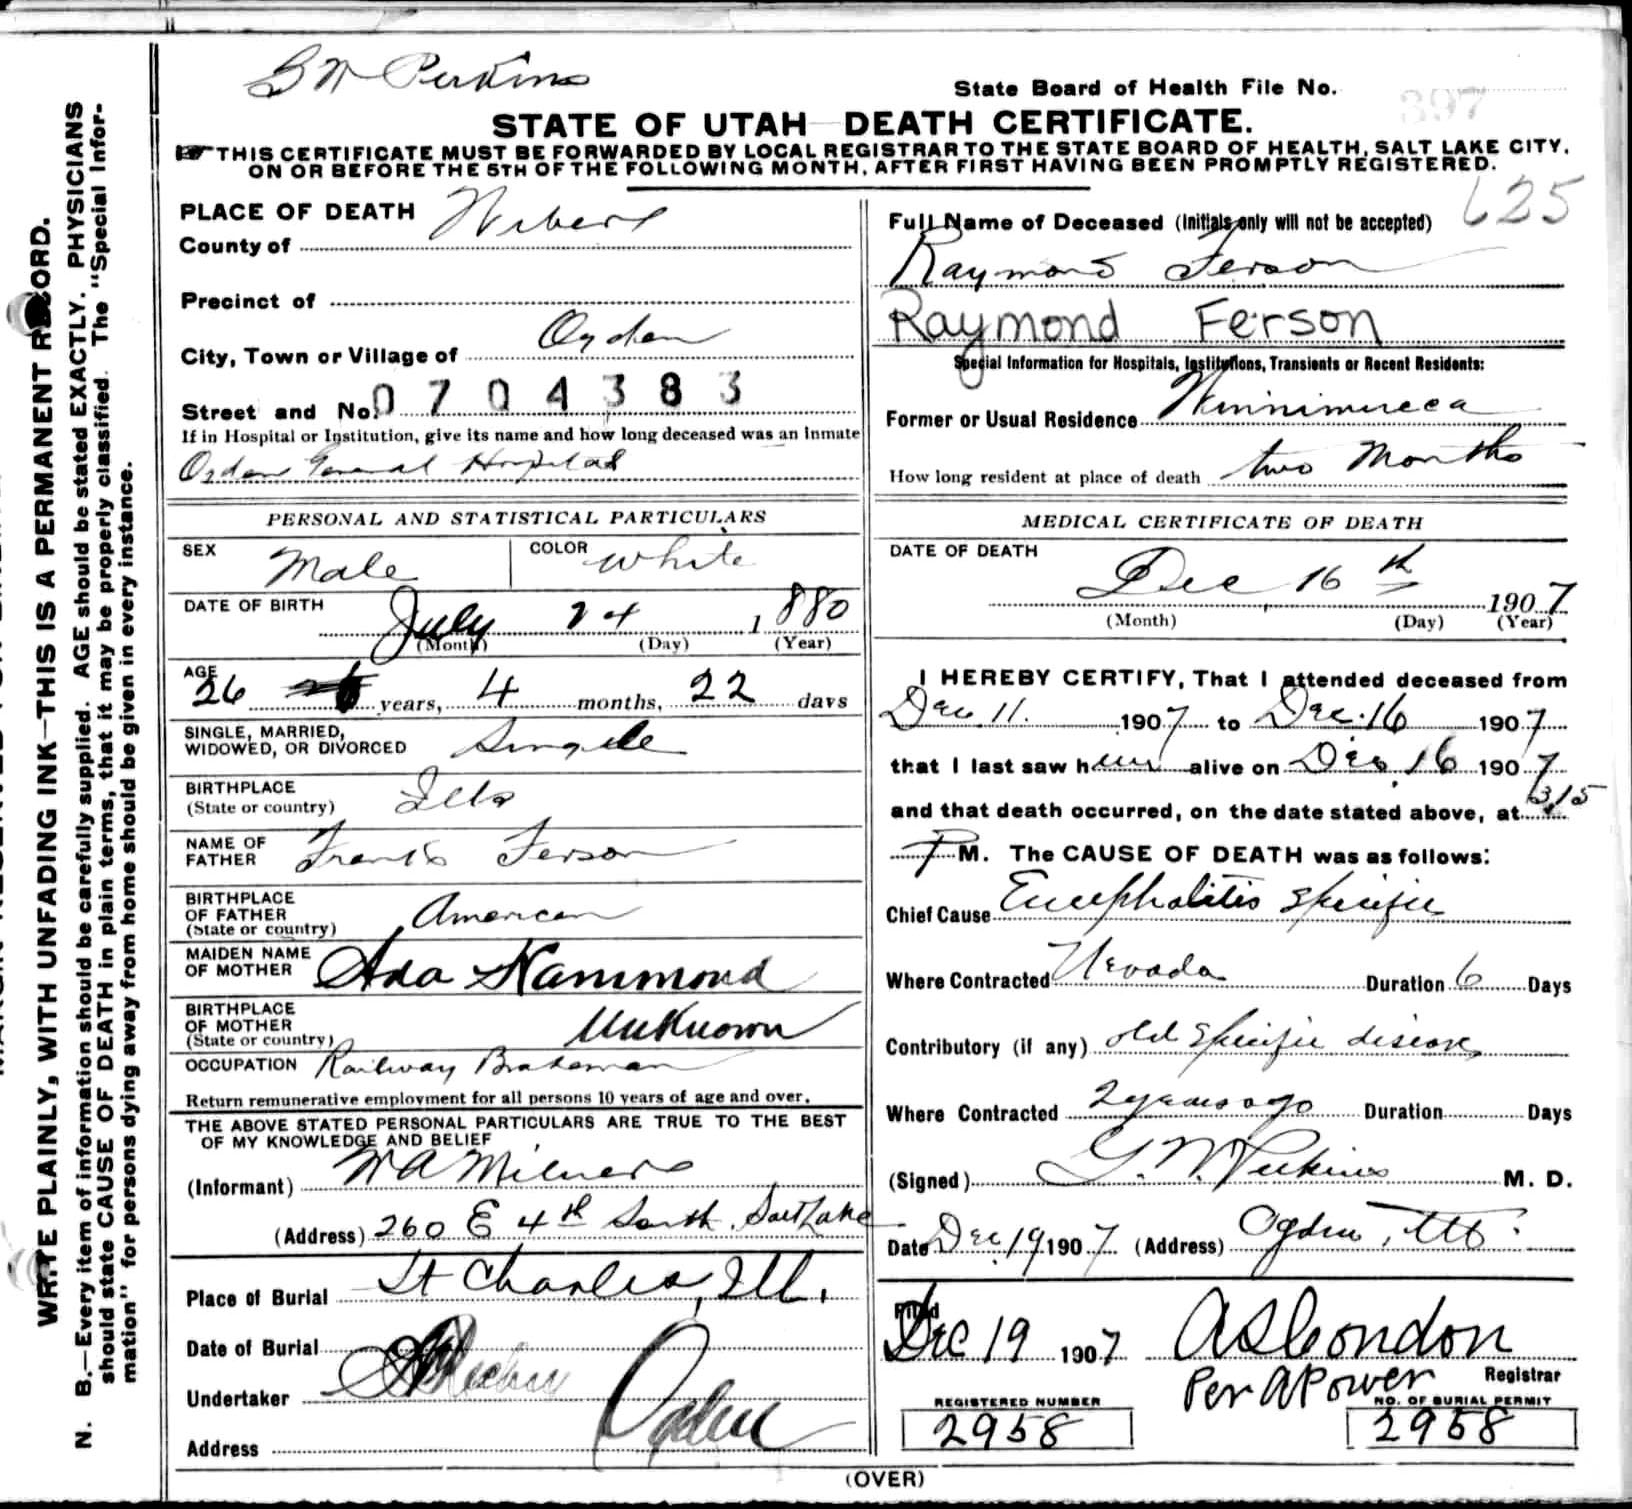 G W Perkins
State Board of Health File No. 397
STATE OF UTAH DEATH CERTIFICATE.
THIS CERTIFICATE MUST BE FORWARDED BY LOCAL REGISTRAR TO THE STATE BOARD OF HEALTH, SALT LAKE CITY,
ON OR BEFORE THE 5TH OF THE FOLLOWING MONTH, AFTER FIRST HAVING BEEN PROMPTLY REGISTERED.
625
WRITE PLAINLY, WITH UNFADING INK—THIS IS A PERMANENT RECORD.
N. B.—Every item of information should be carefully supplied. AGE should be stated EXACTLY. PHYSICIANS
should state CAUSE OF DEATH in plain terms, that it may be properly classified. The "Special Infor-
mation" for persons dying away from home should be given in every instance.
PLACE OF DEATH
County of Weber
Precinct of
City, Town or Village of Ogden
Street and No. 0704383
If in Hospital or Institution, give its name and how long deceased was an inmate
Ogden General Hospital
PERSONAL AND STATISTICAL PARTICULARS
SEX Male COLOR White
DATE OF BIRTH July 24 1880
(Month) (Day) (Year)
AGE 26 years, 4 months, 22 days
SINGLE, MARRIED,
WIDOWED, OR DIVORCED Single
BIRTHPLACE
(State or country) Ills
NAME OF
FATHER Frank Ferson
BIRTHPLACE
OF FATHER
(State or country) American
MAIDEN NAME
OF MOTHER Ada Hammond
BIRTHPLACE
OF MOTHER
(State or country) Unknown
OCCUPATION Railway Brakeman
Return remunerative employment for all persons 10 years of age and over.
THE ABOVE STATED PERSONAL PARTICULARS ARE TRUE TO THE BEST
OF MY KNOWLEDGE AND BELIEF
(Informant) W A Milner
(Address) 260 E 4th South, Salt Lake
Place of Burial St Charles, Ill.
Date of Burial
Undertaker
Address Ogden
Full Name of Deceased (Initials only will not be accepted)
Raymond Ferson
Raymond Ferson
Special Information for Hospitals, Institutions, Transients or Recent Residents:
Former or Usual Residence Winnimucca
How long resident at place of death two Months
MEDICAL CERTIFICATE OF DEATH
DATE OF DEATH
Dec 16th 1907
(Month) (Day) (Year)
I HEREBY CERTIFY, That I attended deceased from
Dec 11. 1907 to Dec. 16 1907
that I last saw him alive on Dec. 16 1907
and that death occurred, on the date stated above, at 3.15
P M. The CAUSE OF DEATH was as follows:
Chief Cause Encephalitis Specific
Where Contracted Nevada Duration 6 Days
Contributory (if any) old Specific disease
Where Contracted 2 years ago Duration Days
(Signed) G. W. Perkins M. D.
Date Dec 19 1907 (Address) Ogden, Ut.
Filed
Dec 19 1907 A S Condon
Registrar
Per A Power
REGISTERED NUMBER
2958
NO. OF BURIAL PERMIT
2958
(OVER)